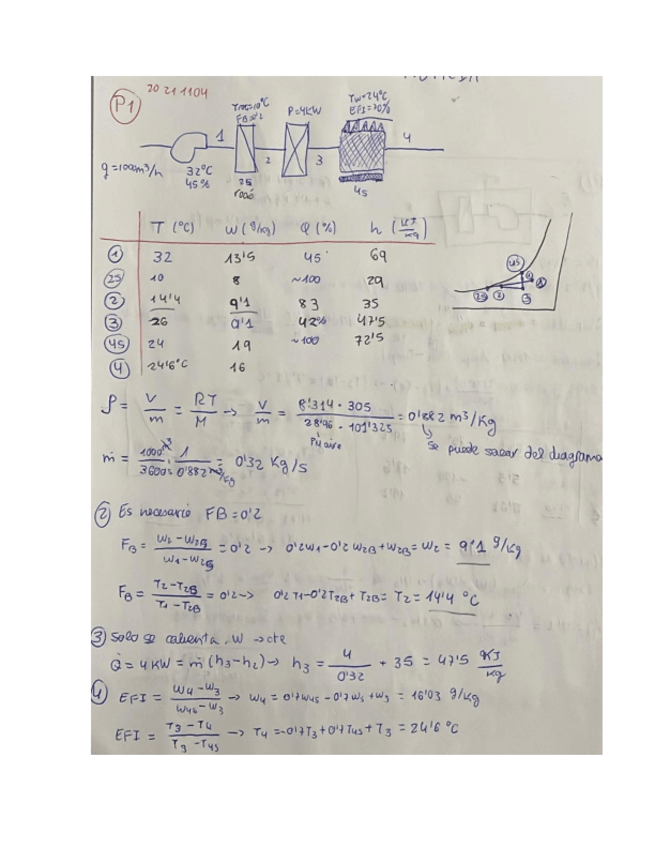 20 21 1104
P1
Troc=10°C
FB=0'2
P=4KW
Tw=24°C
EFI=70%
1
2
3
4
q=1000m³/h
32°C
45%
2S
rocío
4S
T (°C) W (g/kg) φ (%) h (KJ/kg)
1 32 13'5 45 69
2S 10 8 ~100 29
2 14'4 9'1 83 35
3 26 9'1 42% 47'5
4S 24 19 ~100 72'5
4 24'6°C 16
4S
2S 2 3
ρ = V/m = RT/M → V/m = 8'314 · 305 / 28'96 · 101'325 = 0'882 m³/Kg
PM aire
Se puede sacar del diagrama
ṁ = 1000 m³/3600s · 1/0'882 m³/kg = 0'32 Kg/s
2 Es necesario FB=0'2
FB = W2-W2S/W1-W2S = 0'2 → 0'2W1-0'2W2B+W2B = W2 = 9'1 g/kg
FB = T2-T2B/T1-T2B = 0'2 → 0'2T1-0'2T2B+T2B = T2 = 14'4 °C
3 Solo se calienta, W → cte
Q̇ = 4KW = ṁ (h3-h2) → h3 = 4/0'32 + 35 = 47'5 KJ/kg
4 EFI = W4-W3/W4S-W3 → W4 = 0'7W4S-0'7W3+W3 = 16'03 g/kg
EFI = T3-T4/T3-T4S → T4 = -0'7T3+0'7T4S+T3 = 24'6 °C